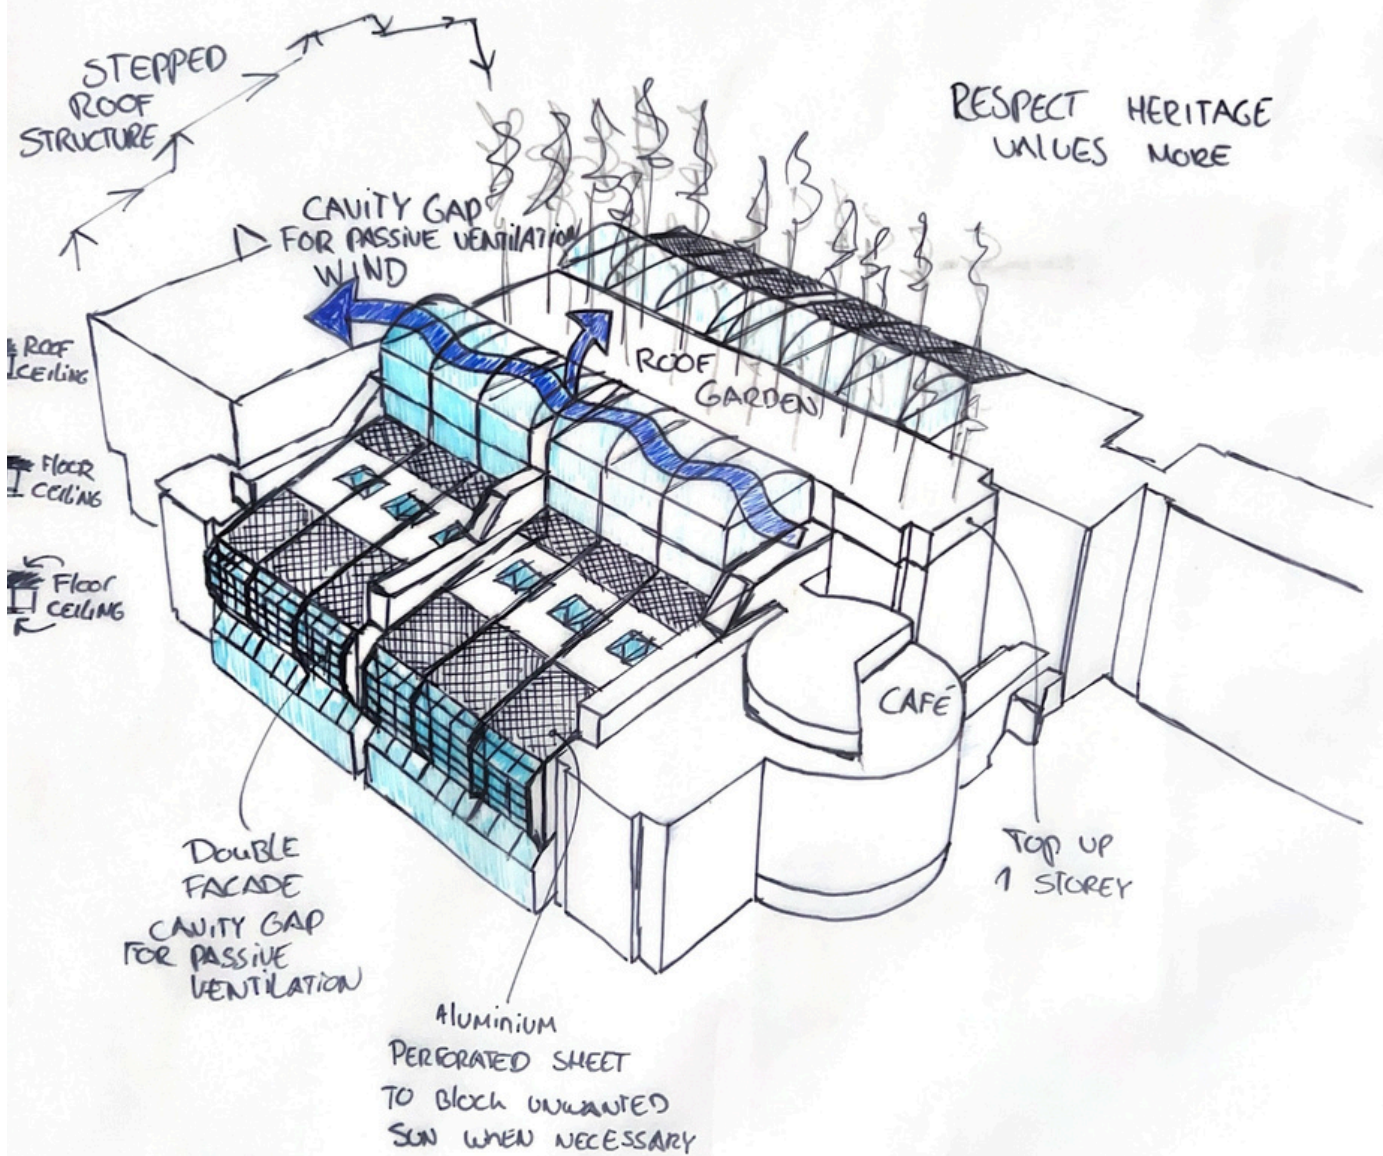 STEPPED
ROOF
STRUCTURE
RESPECT HERITAGE
VALUES MORE
CAVITY GAP
FOR PASSIVE VENTILATION
WIND
ROOF
CEILING
ROOF
GARDEN
FLOOR
CEILING
FLOOR
CEILING
CAFÉ
DOUBLE
FACADE
CAVITY GAP
FOR PASSIVE
VENTILATION
TOP UP
1 STOREY
ALUMINIUM
PERFORATED SHEET
TO BLOCK UNWANTED
SUN WHEN NECESSARY